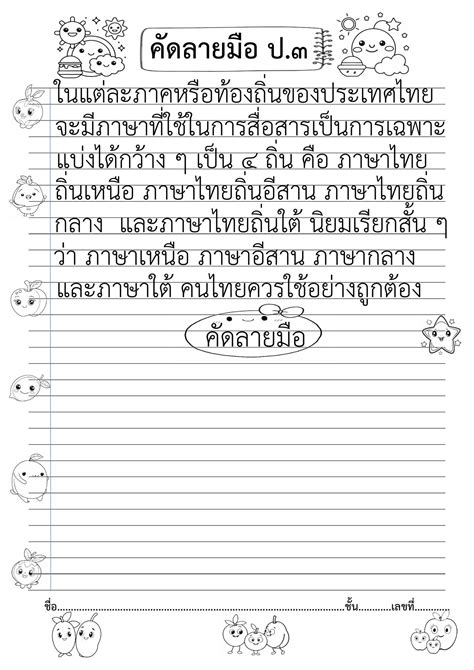 คัดลายมือ ป.๓
ในแต่ละภาคหรือท้องถิ่นของประเทศไทย
จะมีภาษาที่ใช้ในการสื่อสารเป็นการเฉพาะ
แบ่งได้กว้าง ๆ เป็น ๔ ถิ่น คือ ภาษาไทย
ถิ่นเหนือ ภาษาไทยถิ่นอีสาน ภาษาไทยถิ่น
กลาง และภาษาไทยถิ่นใต้ นิยมเรียกสั้น ๆ
ว่า ภาษาเหนือ ภาษาอีสาน ภาษากลาง
และภาษาใต้ คนไทยควรใช้อย่างถูกต้อง
คัดลายมือ
ชื่อ..........................................................ชั้น............เลขที่............